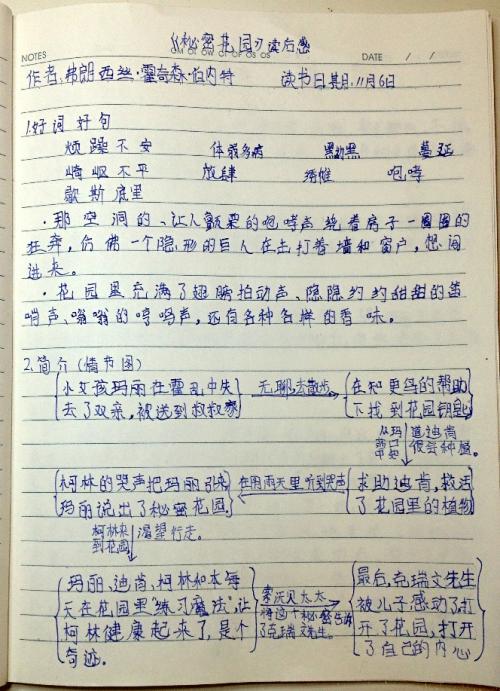 《秘密花园》读后感
NOTES
DATE / /
作者:弗朗西丝·霍奇森·伯内特 读书日期:11月6日
1.好词好句
烦躁不安 体弱多病 黑黝黝 蔓延
崎岖不平 放肆 咆哮
歇斯底里
·那空洞的、让人颤栗的咆哮声绕着房子一圈圈的
狂奔,仿佛一个隐形的巨人在击打着墙和窗户,想闯
进来。
·花园里充满了翅膀拍动声、隐隐约约甜甜的笛
哨声、嗡嗡的哼鸣声,还有各种各样的香味。
2.简介(情节图)
小女孩玛丽在霍乱中失 无聊,去散步 在知更鸟的帮助
去了双亲,被送到叔叔家 下找到花园钥匙
从玛 道迪肯
口 很会种植。
中知
柯林的哭声把玛丽引来 在雨天里听到哭声 求助迪肯,救活
玛丽说出了秘密花园。 了花园里的植物
柯林来 渴望行走。
到花园
玛丽、迪肯、柯林和本每 索沃贝太太 最后,克瑞文先生
天在花园里“练习魔法”,让 将这个秘密告诉 被儿子感动了,打
柯林健康起来了,是个 了克瑞文先生。 开了花园,打开
奇迹。 了自己的内心